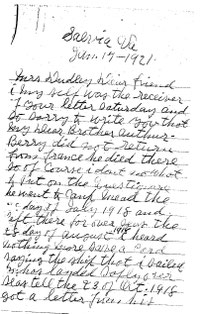 Salvia Va
Jan. 17-1921.
Miss Dudley Deir Friend
i my self was the receiver
of your letter Saturday and
So Sorry to write you that
my Deir Brother Author.
Berry did not return
from France he died there
So of Course i dont no what
to Put on the
he went to Camp Mead the
day of July 1918 and
left there for over Seas the
28 day of august 1918 i heard
nothing more Save a Card
saying the ship that i sailed
on has landed Safe over
Seas tell the 23 of Oct. 1918
got a letter from his